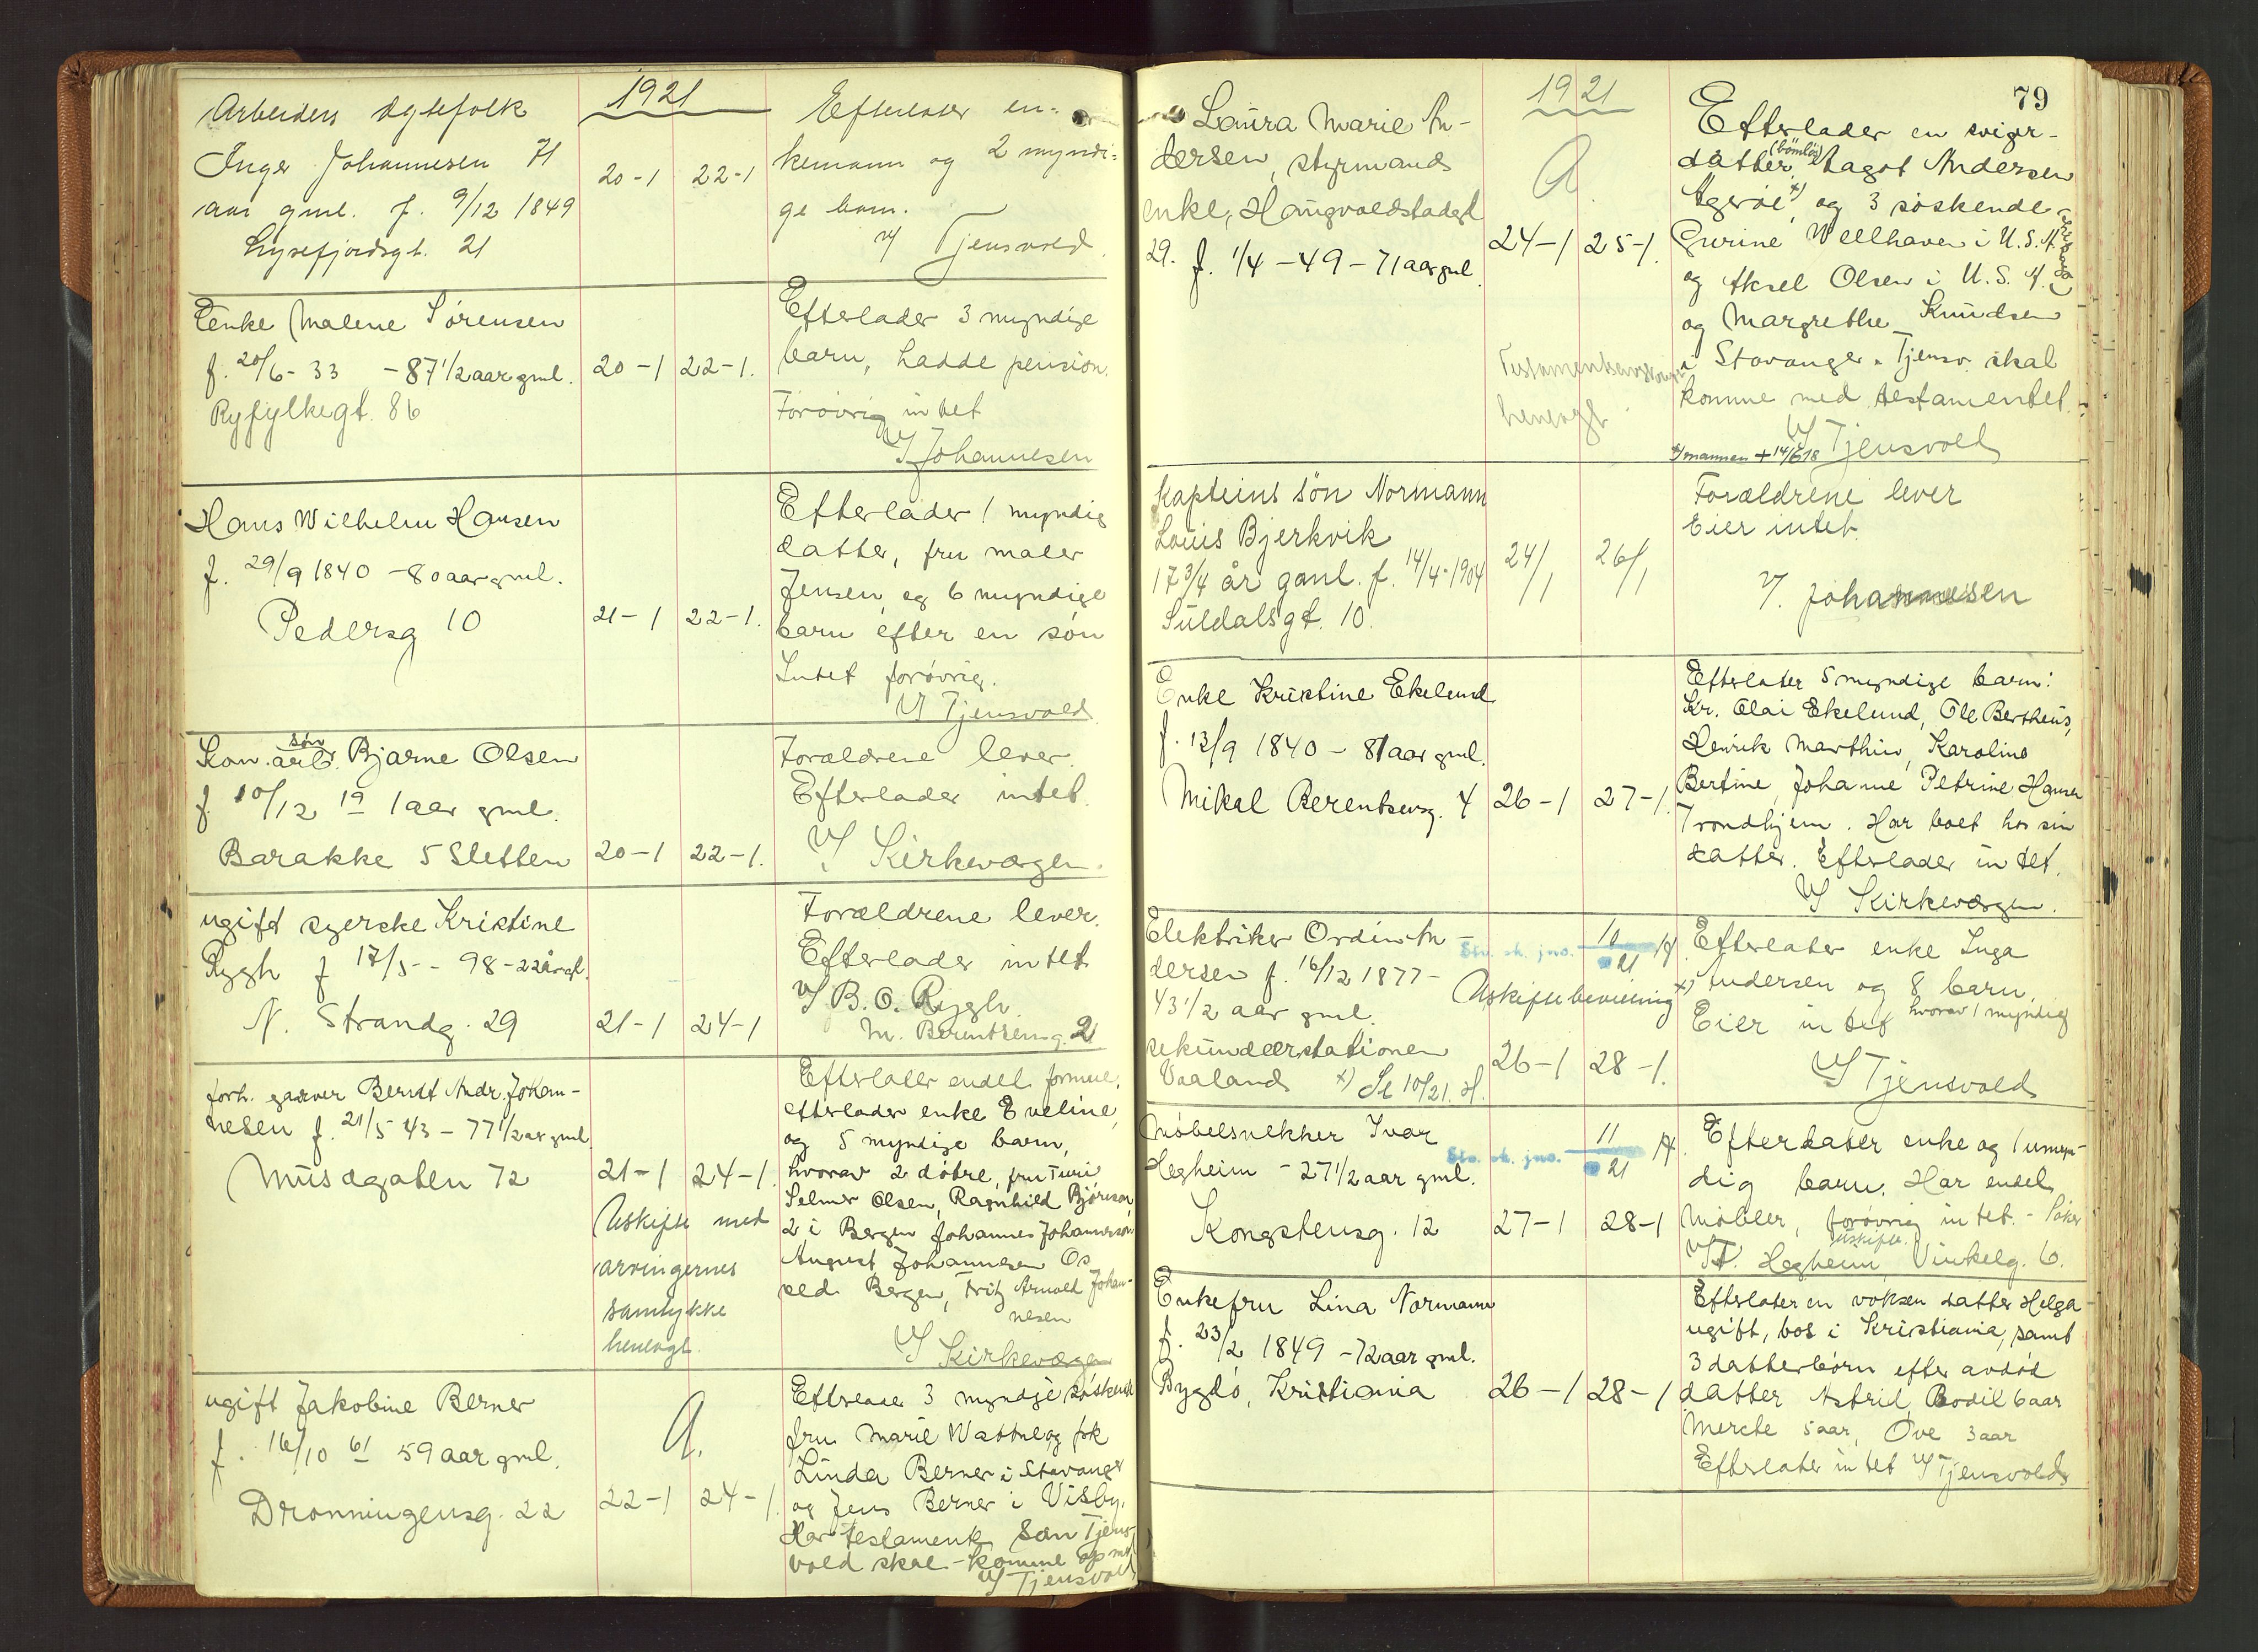 1921
Arbeiders
Inger Johannesen 71
aar gml. f. 9/12 1849
Lysefjordsgt. 21
20-1 22-1
Efterlater en-
kemann og 2 myndi-
ge barn.
V/ Tjensvold
Enke Malene Sørensen
f. 20/6 - 33 - 87 1/2 aar gml.
Ryfylkegt. 86
20-1 22-1.
Efterlader 3 myndige
barn, hadde pension.
Forøvrig intet
V/ Johannesen
Hans Wilhelm Hansen
f. 29/9 1840 - 80 aar gml.
Pedersg 10
21-1 22-1.
Efterlader 1 myndig
datter, fru maler
Jensen, og 6 myndige
barn efter en søn
Intet forøvrig.
V/ Tjensvold
søn
Kon. arb. Bjarne Olsen
f. 10/12 19 1 aar gml.
Barakke 5 Sletten
20-1 22-1.
Forældrene lever.
Efterlader intet.
V/ Kirkevægen.
ugift syerske Kristine
Rygh f 17/5 - 98 - 22 år gl.
N. Strandg. 29
21-1 24-1
Forældrene lever.
Efterlader intet
V/ B. O. Rygh.
M. Berentseng. 2
forh. garver Berndt Andr. Johan-
nesen f. 21/5 43 - 77 1/2 aar gml
Musægaten 72
21-1 24-1.
Uskifte med
arvingernes
samtykke
henlagt.
Efterlater endel formue,
efterlader enke Eveline,
og 5 myndige barn,
hvorav 2 døtre, fru
Selmer Olsen, Ragnhild
2 i Bergen Johannes Johannesen
August Johannesen Os
ved Bergen, Fritz Arnold Johan-
nesen
V/ Kirkevægen
ugift Jakobine Berner
f. 16/10 61 59 aar gml.
Dronningensg. 22
A.
22-1 24-1.
Efterlader 3 myndige søskende
fru Marie Wattne og frk
Linda Berner i Stavanger
og Jens Berner i Visby.
Har testamente som Tjens-
vold skal komme op med
V/ Tjensvold
79
1921
Laura Marie An-
dersen, styrmands
enke, Haugvaldstadgt
29. f. 1/4 - 49 - 71 aar gml.
A
24-1 25-1.
henlagt.
Efterlader en sviger-
(barnløs)
datter, Dagot Andersen
Agerøe x) og 3 søskende
Gurine Wellhaven i U.S.A.
og Aksel Olsen i U.S.A.
og Margrethe Knudsen
i Stavanger. Tjensv. skal
komme med testamentet.
V/ Tjensvold
x) mannen + 14/6 18
Kapteins søn Normann
Louis Bjerkvik
17 3/4 år gaml. f. 14/4-1904
Suldalsgt. 10.
24/1 26/1
Forældrene lever
Eier intet.
V/. Johannesen
Enke Kristine Ekelund
f. 13/9 1840 - 81 aar gml.
Mikal Berentseng. 4
26-1 27-1.
Efterlater 5 myndige barn:
Kr. Olai Ekelund, Ole Bertheus,
Henrik Marthin, Karoline
Bertine, Johanne Petrine Hansen
Trondhjem. Har boet hos sin
datter. Efterlader intet.
V/ Kirkevægen.
Elektriker Ordin An-
dersen f. 16/12 1877 -
43 1/2 aar gml.
sekundærstationen
Vaaland x) Se 10/21. H.
Stv. sk. jno. 10/21 H.
Uskiftebevilling x)
26-1 28-1.
Efterlater enke Inga
Andersen og 8 barn.
hvorav 1 myndig
Eier intet
V/ Tjensvold
Møbelsnekker Ivar
Hegheim - 27 1/2 aar gml.
Kongstensg. 12
Stv. sk. jno. 11/21 H.
27-1 28-1
Efterlater enke og 1 umyn-
dig barn. Har endel
Møbler, forøvrig intet. - Søker
uskifte.
V/ T. Hegheim, Vinkelg. 6.
Enkefru Lina Normann
f. 23/2 1849 - 72 aar gml.
Bygdø, Kristiania
26-1 28-1
Efterlater en voksen datter Helga
ugift, bos i Kristiania, samt
3 datterbørn efter avdød
datter Astrid, Bodil 6 aar
Merete 5 aar, Ove 3 aar
Efterlater intet V/ Tjensvold